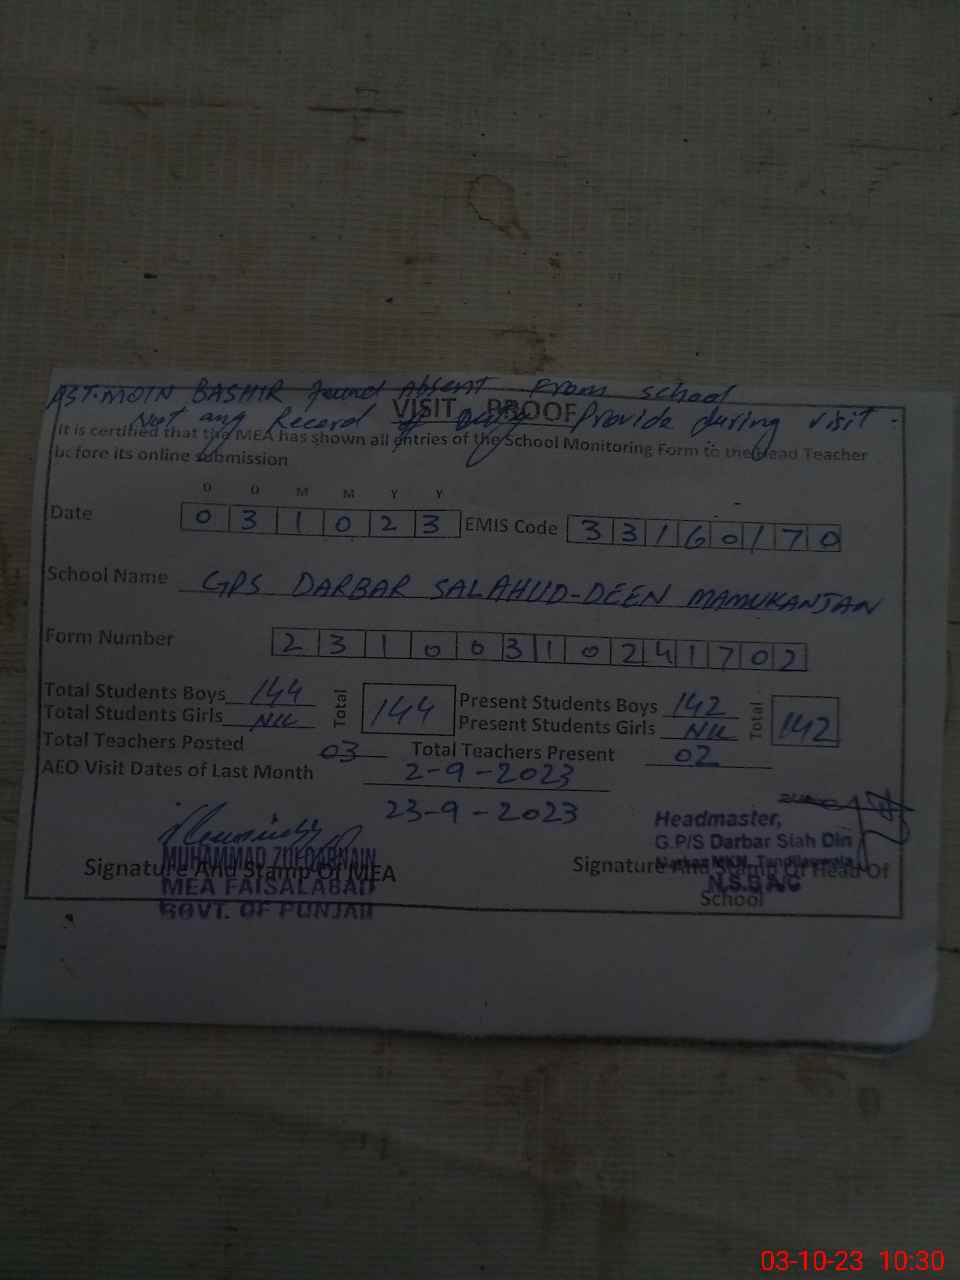 AST. MOIN BASHIR found Absent From school
VISIT PROOF
Not any Record of Duty Provide during visit
It is certified that the MEA has shown all entries of the School Monitoring Form to the Head Teacher
before its online submission
D D M M Y Y
Date 0 3 1 0 2 3 EMIS Code 3 3 1 6 0 1 7 0
School Name GPS DARBAR SALAHUD-DEEN MAMUKANJAN
Form Number 2 3 1 0 0 3 1 0 2 4 1 7 0 2
Total Students Boys 144 Total 144 Present Students Boys 142 Total 142
Total Students Girls Nil Present Students Girls Nil
Total Teachers Posted 03 Total Teachers Present 02
AEO Visit Dates of Last Month 2-9-2023
23-9-2023
Headmaster,
G.P/S Darbar Slah Din
MUHAMMAD ZULQARNAIN
Signature And Stamp Of MEA Signature And Stamp Of Head Of
MEA FAISALABAD
School
GOVT. OF PUNJAB
03-10-23 10:30